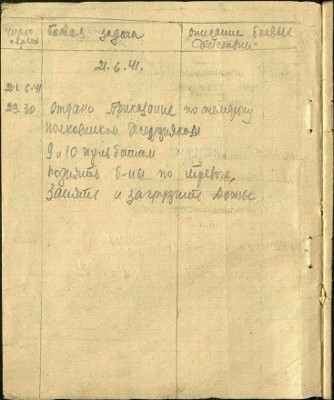 число
Боевая задача
Описание боевых
действий
21.6.41.
21.6.41
23.30 Отдано приказание по телефону
полковником
9 и 10 пульбатам
поднять б-ны по тревоге,
Занять и загрузить